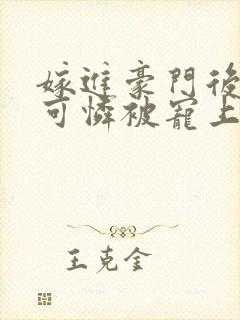 嫁進豪門後
可憐被寵上
王克金